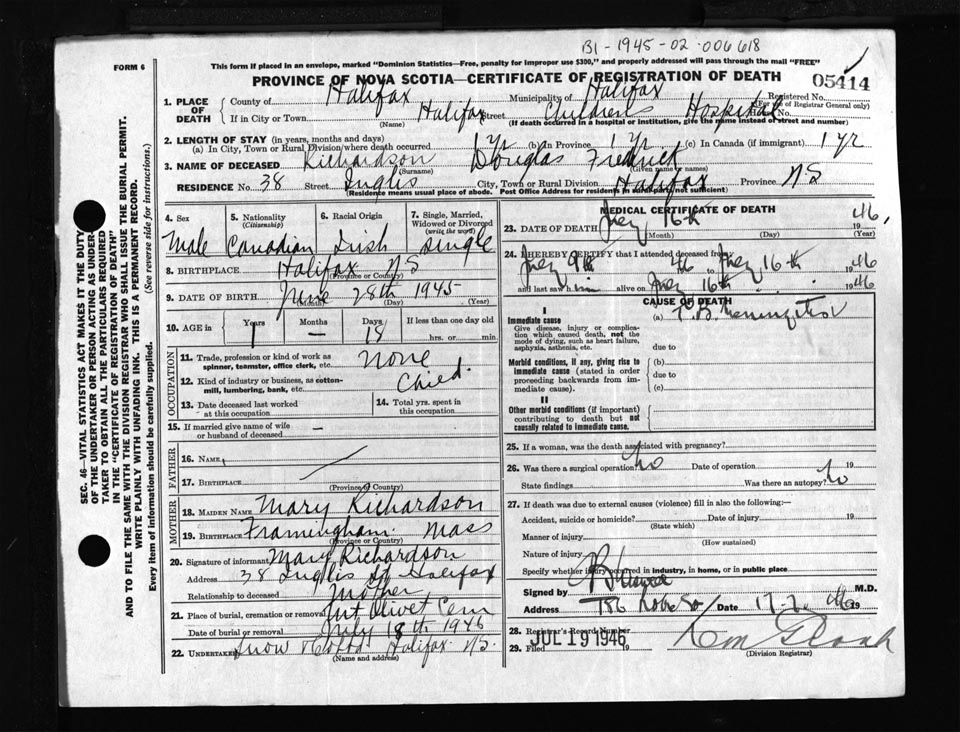 B1-1945-02-006618
FORM 6
This form if placed in an envelope, marked "Dominion Statistics—Free, penalty for improper use $300," and properly addressed will pass through the mail "FREE"
PROVINCE OF NOVA SCOTIA—CERTIFICATE OF REGISTRATION OF DEATH
05414
1. PLACE OF DEATH
County of Halifax Municipality of Halifax Registered No.
(For use of Registrar General only)
If in City or Town Halifax Street Childrens Hospital House No.
(Name) (If death occurred in a hospital or institution, give the name instead of street and number)
2. LENGTH OF STAY (in years, months and days)
(a) In City, Town or Rural Division where death occurred 1 yr (b) In Province 1 yr (c) In Canada (if immigrant) 1 yr
3. NAME OF DECEASED Richardson Douglas Fredrick
(Surname) (Given name or names)
RESIDENCE No. 38 Street Inglis City, Town or Rural Division Halifax Province NS
(Residence means usual place of abode. Post Office Address for residents in rural parts not sufficient)
4. Sex Male
5. Nationality (Citizenship) Canadian
6. Racial Origin Irish
7. Single, Married, Widowed or Divorced (write the word) Single
8. BIRTHPLACE Halifax NS
(Province or Country)
9. DATE OF BIRTH June 28th 1945
(Month) (Day) (Year)
10. AGE in Years 1 Months — Days 18 If less than one day old
hrs. or min.
OCCUPATION
11. Trade, profession or kind of work as spinner, teamster, office clerk, etc. None
12. Kind of industry or business, as cotton-mill, lumbering, bank, etc. Child.
13. Date deceased last worked at this occupation
14. Total yrs. spent in this occupation
15. If married give name of wife or husband of deceased —
FATHER
16. NAME
17. BIRTHPLACE
(Province or Country)
MOTHER
18. MAIDEN NAME Mary Richardson
19. BIRTHPLACE Framingham Mass
(Province or Country)
20. Signature of informant Mary Richardson
Address 38 Inglis St Halifax
Relationship to deceased Mother
21. Place of burial, cremation or removal Mt Olivet Cem
Date of burial or removal July 18th 1946
22. UNDERTAKER Snow Halifax NS.
(Name and address)
MEDICAL CERTIFICATE OF DEATH
23. DATE OF DEATH July 16th 1946
(Month) (Day) (Year)
24. I HEREBY CERTIFY that I attended deceased from
July 9th 46 to July 16th 1946
and last saw him alive on July 16th 1946
CAUSE OF DEATH
I
Immediate cause
Give disease, injury or complication which caused death, not the mode of dying, such as heart failure, asphyxia, asthenia, etc.
(a) T.B. Meningitis
due to
Morbid conditions, if any, giving rise to immediate cause (stated in order proceeding backwards from immediate cause).
(b)
due to
(c)
II
Other morbid conditions (if important) contributing to death but not causally related to immediate cause.
25. If a woman, was the death associated with pregnancy?
26. Was there a surgical operation No Date of operation 19
State findings Was there an autopsy? No
27. If death was due to external causes (violence) fill in also the following:—
Accident, suicide or homicide? Date of injury 19
(State which)
Manner of injury
(How sustained)
Nature of injury
Specify whether injury occurred in industry, in home, or in public place
Signed by M.D.
Address Date 17-7- 1946
28. Registrar's Record Number
29. Filed JUL 19 1946 19
(Division Registrar)
SEC. 46—VITAL STATISTICS ACT MAKES IT THE DUTY
OF THE UNDERTAKER OR PERSON ACTING AS UNDERTAKER TO OBTAIN ALL THE PARTICULARS REQUIRED
IN THE "CERTIFICATE OF REGISTRATION OF DEATH"
AND TO FILE THE SAME WITH THE DIVISION REGISTRAR WHO SHALL ISSUE THE BURIAL PERMIT.
WRITE PLAINLY WITH UNFADING INK. THIS IS A PERMANENT RECORD.
Every item of information should be carefully supplied. (See reverse side for instructions.)